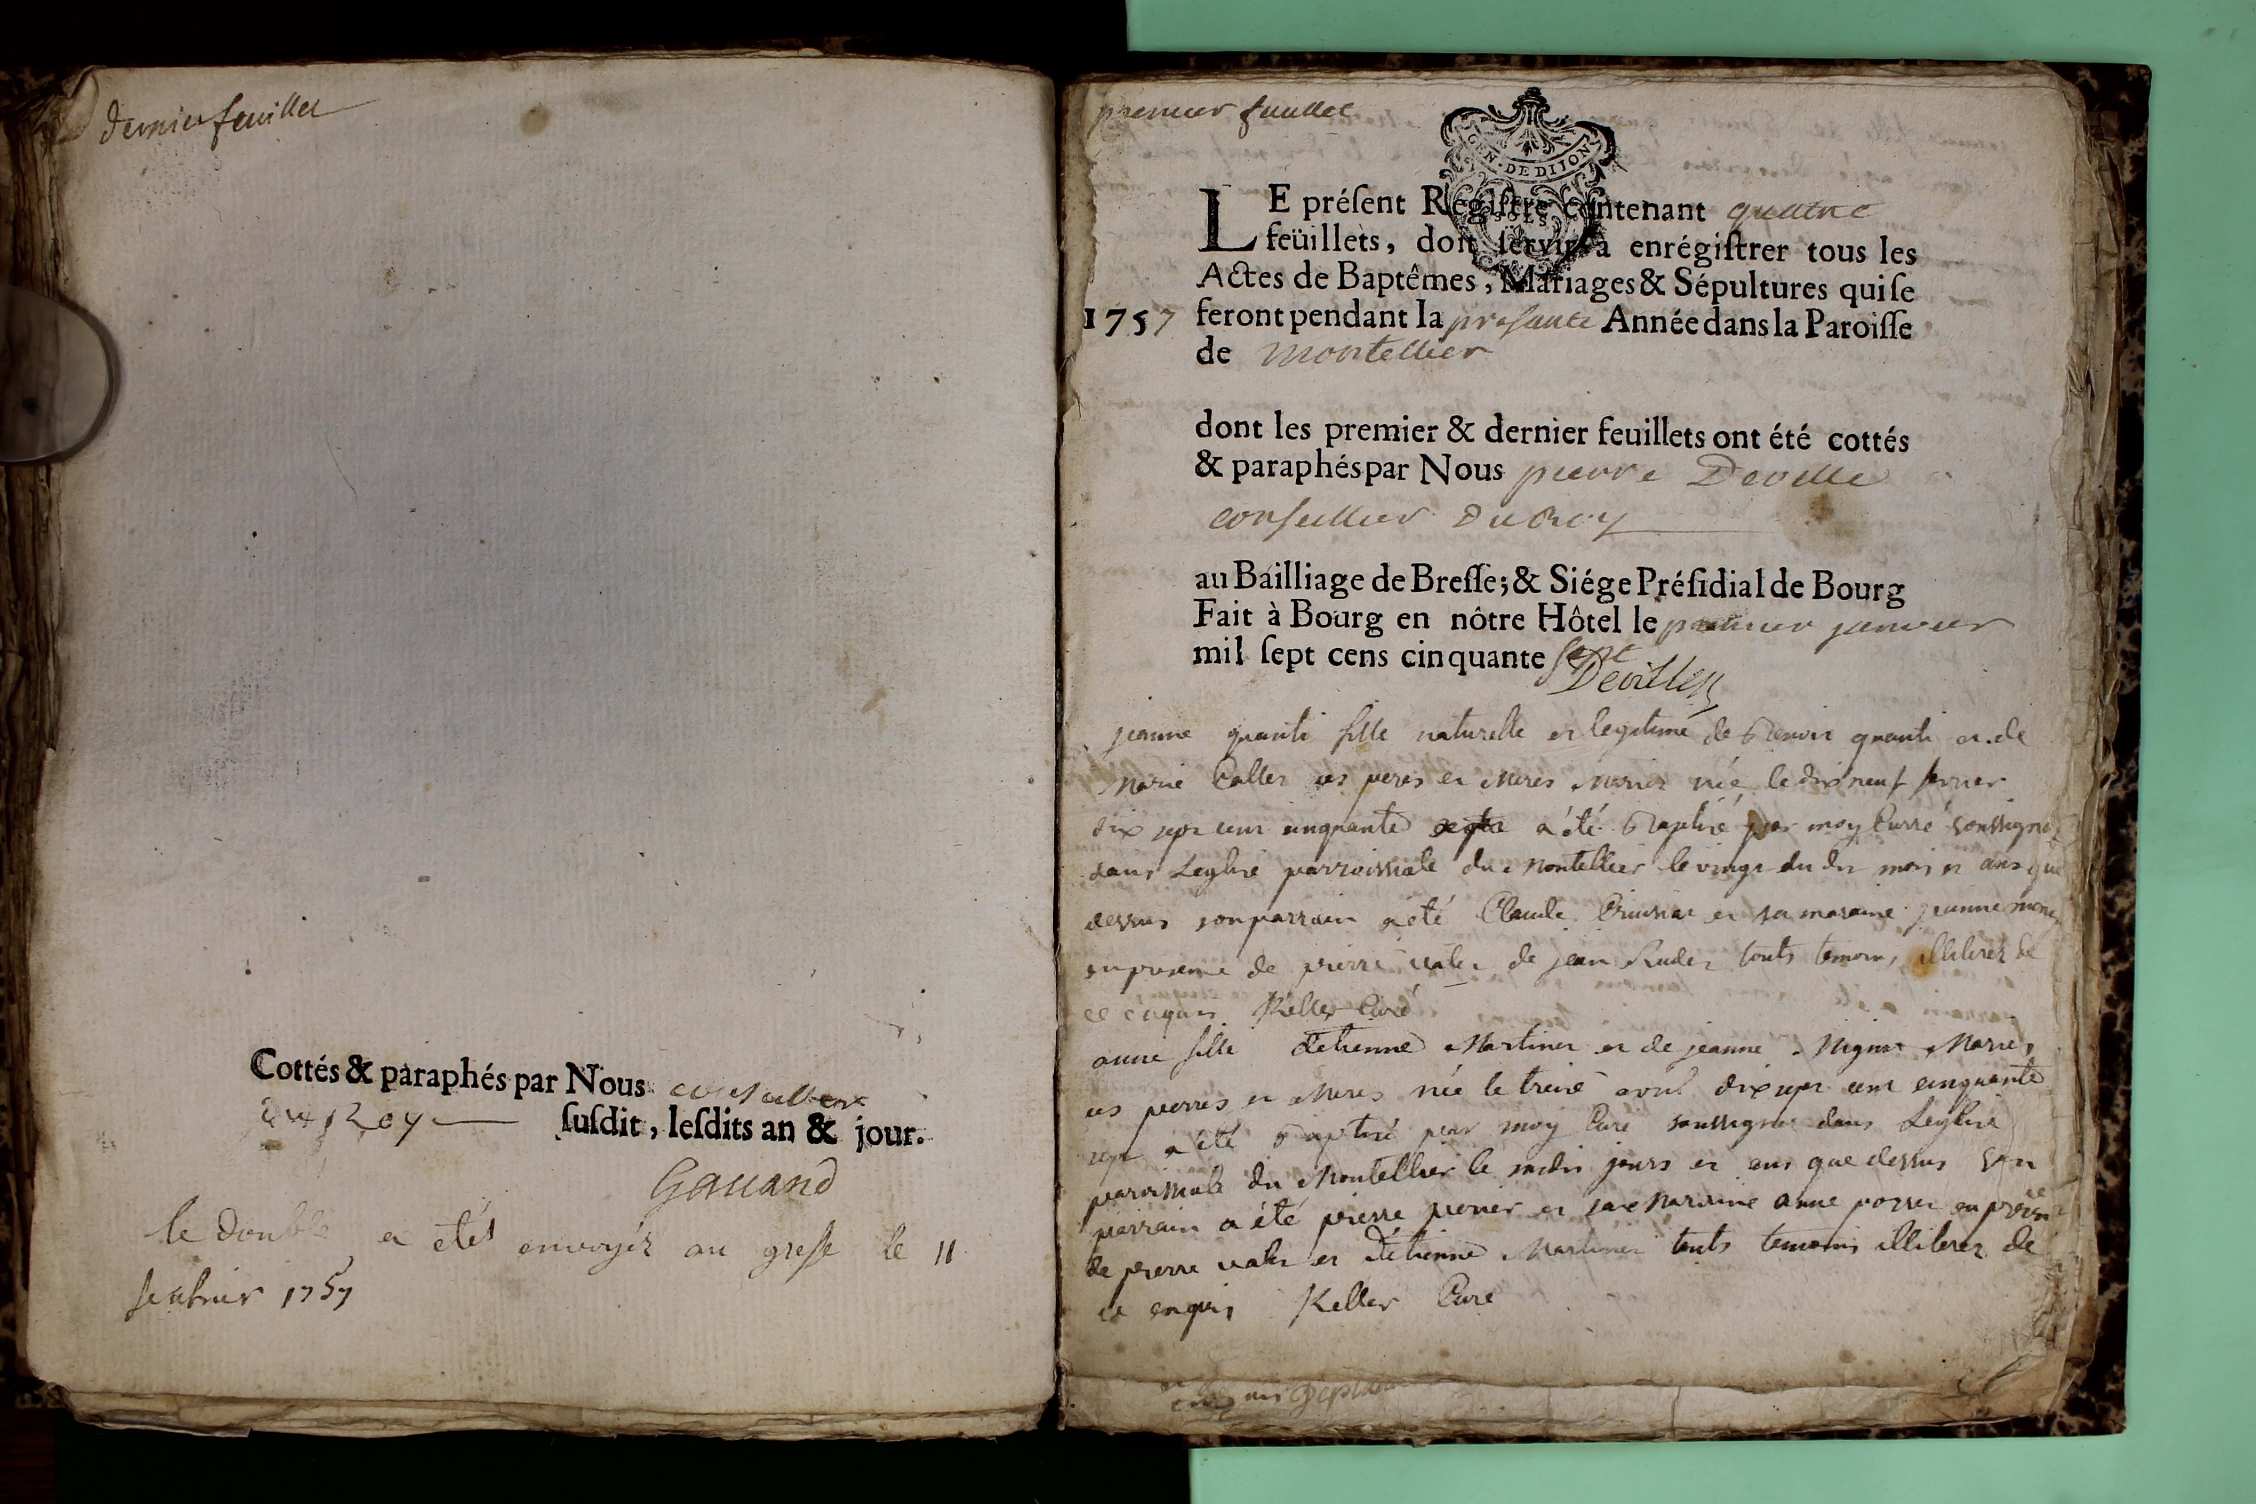 dernier feuillet
Cottés & paraphés par Nous conseiller
du Roy ſuſdit, leſdits an & jour.
Gauand
le double a étés envoyéz au greffe le 11
1757
premier feuillet
GEN. DE DIJON
LE préſent Regiſtre contenant quatre
feüillets, doit ſervir à enrégiſtrer tous les
Actes de Baptêmes, Mariages & Sépultures qui ſe
1757 feront pendant la presante Année dans la Paroiſſe
de Montellier
dont les premier & dernier feuillets ont été cottés
& paraphés par Nous pierre Deville
conseillier du Roy
au Bailliage de Breſſe; & Siége Préſidial de Bourg
Fait à Bourg en nôtre Hôtel le premier janvier
mil ſept cens cinquante sept
Deville
jeanne quanti fille naturelle et legitime de Benoit quanti et de
Marie Caller ses peres et Meres Mariez née le dixneuf fevrier
dix sept cent cinquante a été Baptisé par moy Curré soussigné
dans Leglise parroissiale du Montellier le vingt du dit mois et ans que
dessus son parrain a été Claude et sa maraine jeanne
en presence de pierre de jean touts temoins illiterez de
ce enquis Keller Curé
anne fille detienne Martinet et de jeanne Mignot Mariez
ses perres et Meres née le treize avril dix sept cent cinquante
sept a été Baptisé par moy Curé soussigné dans Leglise
paroissiale du Montellier le susdit jours et ans que dessus son
parrain a été pierre et sa Marraine anne en presence
de pierre et detienne Martinet touts temoins illiterez de
ce enquis Keller Curé